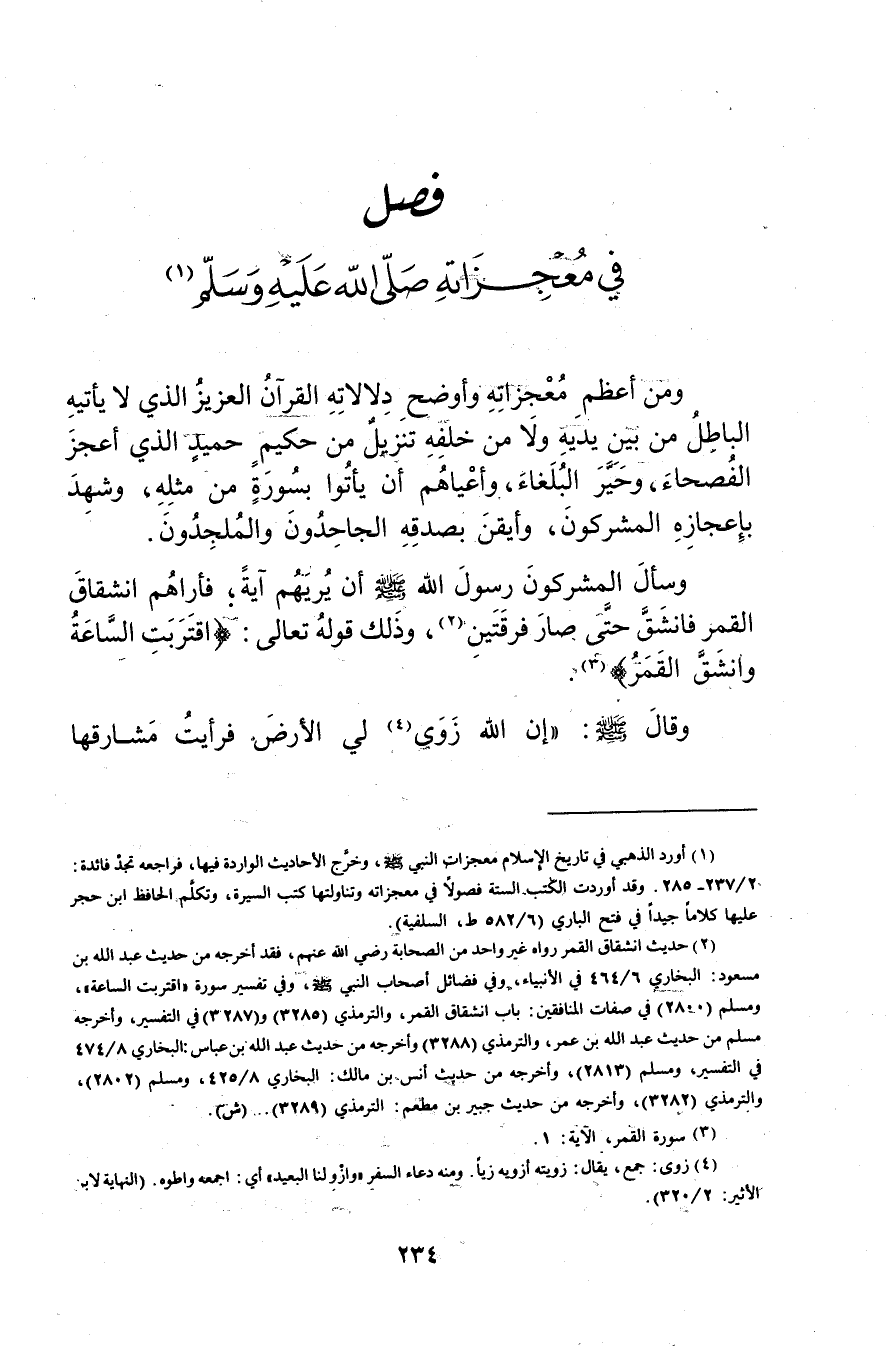 فصل
في مُعْجِزَاتِهِ صَلّى الله عَلَيْهِ وَسَلّم (١)
ومن أعظم مُعْجزاتِهِ وأوضح دِلالاتِهِ القرآنُ العزيزُ الذي لا يأتيهِ
الباطِلُ من بَين يدَيهِ ولَا من خلفِهِ تنزيلٌ من حكيمٍ حميدٍ الذي أعجزَ
الفُصحاءَ، وحَيَّرَ البُلَغاءَ، وأعْياهُم أن يأتُوا بسُورَةٍ من مثلِهِ، وشهِدَ
بإعجازِهِ المشركونَ، وأيقنَ بصدقِهِ الجاحِدُونَ والمُلحِدُونَ.
وسألَ المشركونَ رسولَ الله ﷺ أن يُريَهُم آيةً؛ فأراهُم انشقاقَ
القمر فانشَقَّ حتَّى صارَ فرقَتَين(٢)، وذَلك قولهُ تعالى: ﴿اقتَرَبَتِ السَّاعَةُ
وانشَقَّ القَمَرُ﴾(٣).
وقالَ ﷺ: «إن الله زَوَى(٤) لي الأرضَ فرأيتُ مَشارقها
(١) أورد الذهبي في تاريخ الإسلام معجزات النبي ﷺ، وخرَّج الأحاديث الواردة فيها، فراجعه تجدْ فائدة:
٢٣٧/٢ـ ٢٨٥. وقد أوردت الكتب الستة فصولاً في معجزاته وتناولتها كتب السيرة، وتكلَّم الحافظ ابن حجر
عليها كلاماً جيداً في فتح الباري (٥٨٢/٦ ط، السلفية).
(٢) حديث انشقاق القمر رواه غير واحد من الصحابة رضي الله عنهم، فقد أخرجه من حديث عبد الله بن
مسعود: البخاري ٤٦٤/٦ في الأنبياء، وفي فضائل أصحاب النبي ﷺ، وفي تفسير سورة «اقتربت الساعة»،
ومسلم (٢٨٠٠) في صفات المنافقين: باب انشقاق القمر، والترمذي (٣٢٨٥) و(٣٢٨٧) في التفسير، وأخرجه
مسلم من حديث عبد الله بن عمر، والترمذي (٣٢٨٨) وأخرجه من حديث عبد الله بن عباس: البخاري ٤٧٤/٨
في التفسير، ومسلم (٢٨١٣)، وأخرجه من حديث أنس بن مالك: البخاري ٤٢٥/٨، ومسلم (٢٨٠٢)،
والترمذي (٣٢٨٢)، وأخرجه من حديث جبير بن مطعم: الترمذي (٣٢٨٩)... (ش).
(٣) سورة القمر، الآية: ١.
(٤) زوى: جمع، يقال: زويته أزويه زياً. ومنه دعاء السفر «وازْوِ لنا البعيد» أي: اجمعه واطوه. (النهاية لاب
الأثير: ٣٢٠/٢).
٢٣٤